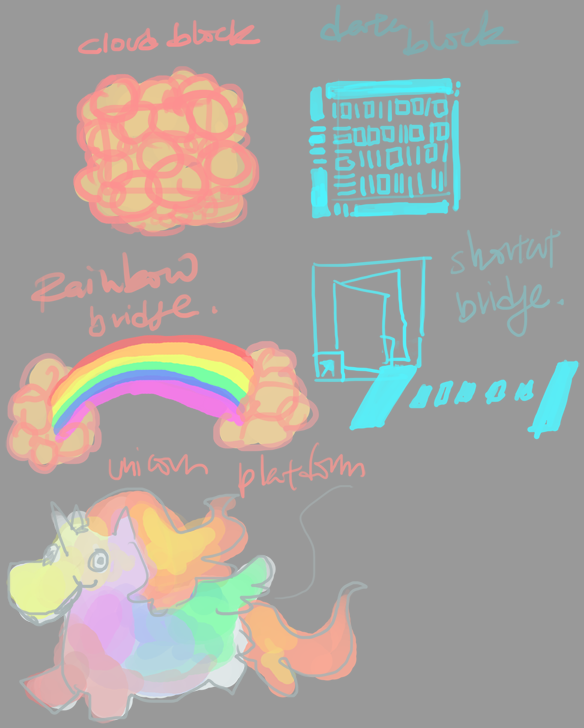 cloud block
data
block
Rainbow
bridge.
shortcut
bridge.
unicorn platform